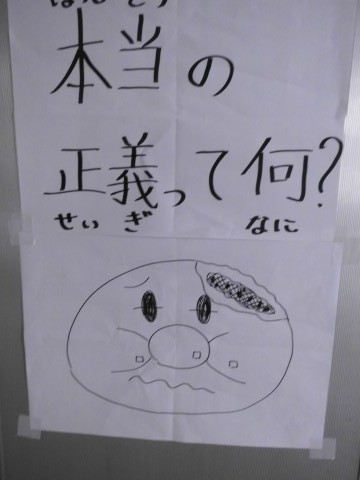 本当の
正義って何?
せいぎ なに